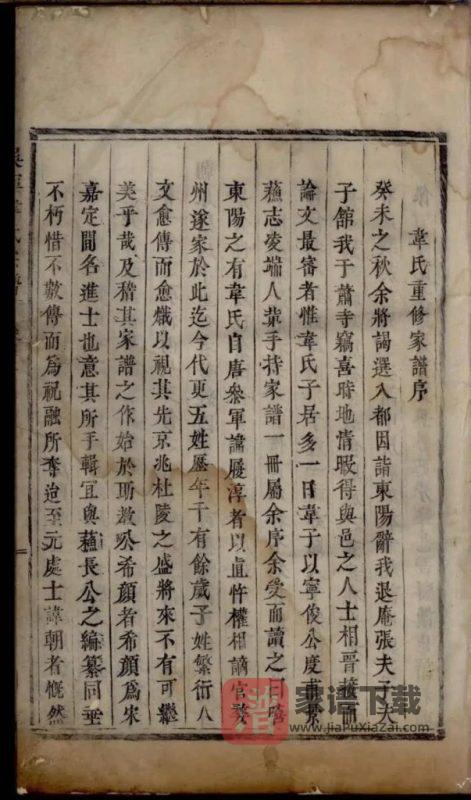 韋氏重修家譜序
癸未之秋余將謁選入都因詣東陽辭我退庵張夫子夫
子舘我于蕭寺竊喜時地清暇得與邑之人士相晉接而
論文最審者惟韋氏子居多一日韋于以寧俊公度甫
蘓志凌端人輩手持家譜一冊屬余序余受而讀之曰
東陽之有韋氏自唐叅軍諱履淳者以直忤權相謫官婺
州遂家於此迄今代更五姓歷年千有餘歲子姓繁衍人
文愈傳而愈熾以視其先京兆杜陵之盛將來不有可繼
美乎哉及稽其家譜之作始於助教公希顔者希顔爲宋
嘉定間名進士也意其所手輯宜與蘓長公之編纂同垂
不朽惜不數傳而爲祝融所奪迨至元處士諱朝者慨然
家谱下载
www.jiaPuXiaZai.com